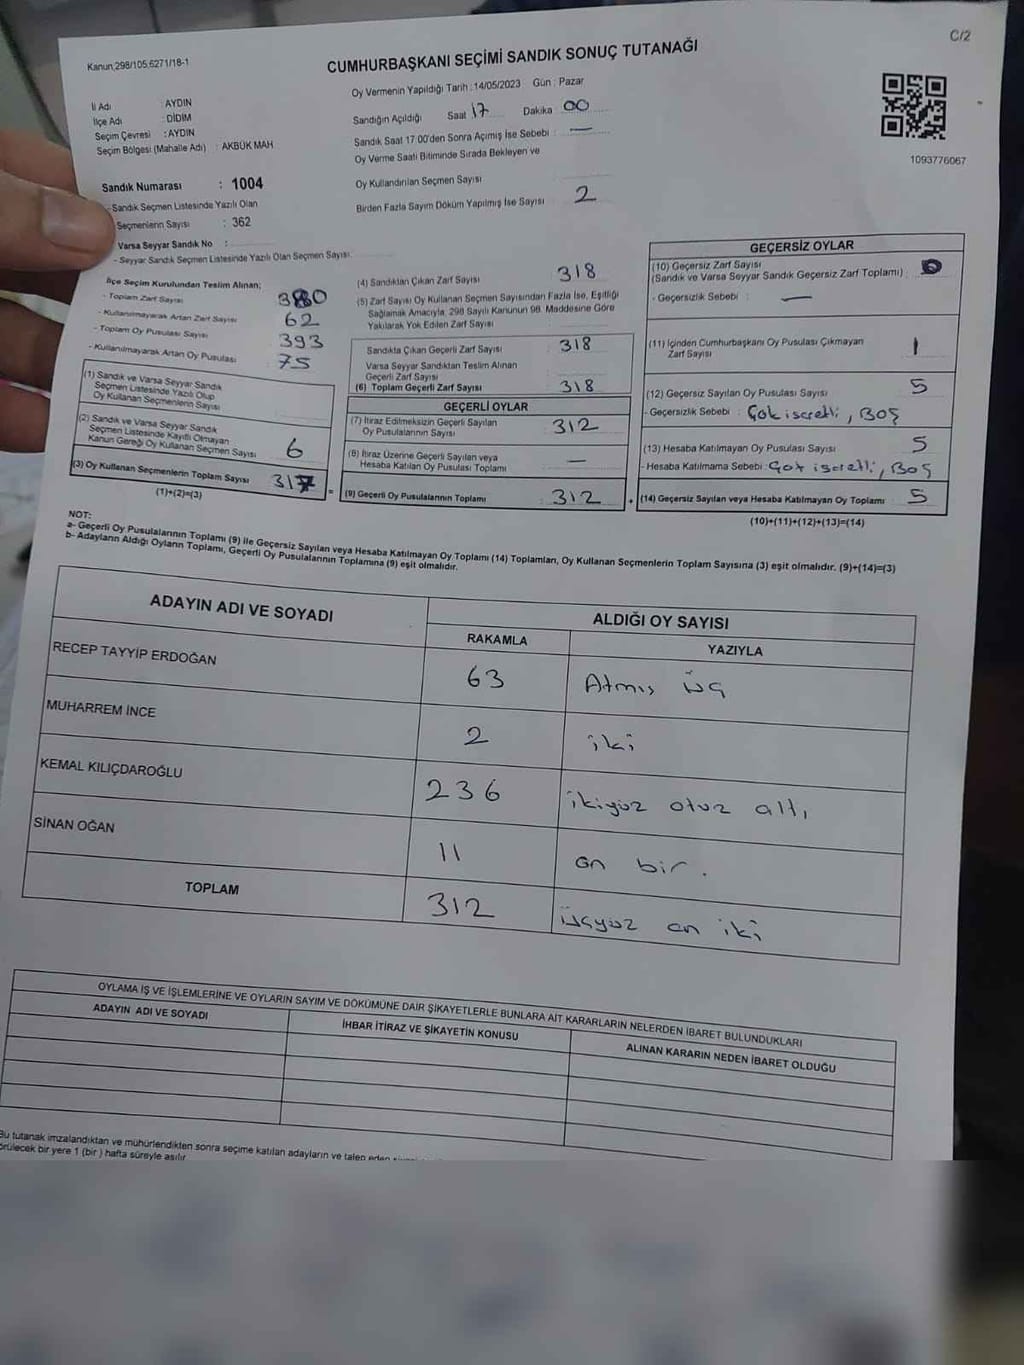 C/2
Kanun,298/105,6271/18-1
CUMHURBAŞKANI SEÇİMİ SANDIK SONUÇ TUTANAĞI
İl Adı : AYDIN
İlçe Adı : DİDİM
Seçim Çevresi : AYDIN
Seçim Bölgesi (Mahalle Adı) : AKBÜK MAH.
Sandık Numarası : 1004
- Sandık Seçmen Listesinde Yazılı Olan
Seçmenlerin Sayısı : 362
Varsa Seyyar Sandık No :
- Seyyar Sandık Seçmen Listesinde Yazılı Olan Seçmen Sayısı:
Oy Vermenin Yapıldığı Tarih : 14/05/2023 Gün : Pazar
Sandığın Açıldığı Saat 17 Dakika 00
Sandık Saat 17:00'den Sonra Açımış İse Sebebi : —
Oy Verme Saati Bitiminde Sırada Bekleyen ve
Oy Kullandırılan Seçmen Sayısı
Birden Fazla Sayım Döküm Yapılmış İse Sayısı 2
1093776067
İlçe Seçim Kurulundan Teslim Alınan;
- Toplam Zarf Sayısı 380
- Kullanılmayarak Artan Zarf Sayısı 62
- Toplam Oy Pusulası Sayısı 393
- Kullanılmayarak Artan Oy Pusulası 75
(1) Sandık ve Varsa Seyyar Sandık
Seçmen Listesinde Yazılı Olup
Oy Kullanan Seçmenlerin Sayısı
(2) Sandık ve Varsa Seyyar Sandık
Seçmen Listesinde Kayıtlı Olmayan
Kanun Gereği Oy Kullanan Seçmen Sayısı 6
(3) Oy Kullanan Seçmenlerin Toplam Sayısı 317 =
(1)+(2)=(3)
(4) Sandıktan Çıkan Zarf Sayısı 318
(5) Zarf Sayısı Oy Kullanan Seçmen Sayısından Fazla İse, Eşitliği
Sağlamak Amacıyla, 298 Sayılı Kanunun 98. Maddesine Göre
Yakılarak Yok Edilen Zarf Sayısı
Sandıkta Çıkan Geçerli Zarf Sayısı 318
Varsa Seyyar Sandıktan Teslim Alınan
Geçerli Zarf Sayısı
(6) Toplam Geçerli Zarf Sayısı 318
GEÇERLİ OYLAR
(7) İtiraz Edilmeksizin Geçerli Sayılan
Oy Pusulalarının Sayısı 312
(8) İtiraz Üzerine Geçerli Sayılan veya
Hesaba Katılan Oy Pusulası Toplamı —
(9) Geçerli Oy Pusulalarının Toplamı 312 +
GEÇERSİZ OYLAR
(10) Geçersiz Zarf Sayısı
(Sandık ve Varsa Seyyar Sandık Geçersiz Zarf Toplamı) : 0
- Geçersizlik Sebebi : —
(11) İçinden Cumhurbaşkanı Oy Pusulası Çıkmayan
Zarf Sayısı 1
(12) Geçersiz Sayılan Oy Pusulası Sayısı 5
- Geçersizlik Sebebi : Çok isaretli, BOŞ
(13) Hesaba Katılmayan Oy Pusulası Sayısı 5
- Hesaba Katılmama Sebebi : Çok isaretli, BOŞ
(14) Geçersiz Sayılan veya Hesaba Katılmayan Oy Toplamı 5
(10)+(11)+(12)+(13)=(14)
NOT:
a- Geçerli Oy Pusulalarının Toplamı (9) ile Geçersiz Sayılan veya Hesaba Katılmayan Oy Toplamı (14) Toplamları, Oy Kullanan Seçmenlerin Toplam Sayısına (3) eşit olmalıdır. (9)+(14)=(3)
b- Adayların Aldığı Oyların Toplamı, Geçerli Oy Pusulalarının Toplamına (9) eşit olmalıdır.
ADAYIN ADI VE SOYADI ALDIĞI OY SAYISI
RAKAMLA YAZIYLA
RECEP TAYYİP ERDOĞAN 63 Atmış üç
MUHARREM İNCE 2 iki
KEMAL KILIÇDAROĞLU 236 ikiyüz otuz altı
SİNAN OĞAN 11 on bir.
TOPLAM 312 üçyüz on iki
OYLAMA İŞ VE İŞLEMLERİNE VE OYLARIN SAYIM VE DÖKÜMÜNE DAİR ŞİKAYETLERLE BUNLARA AİT KARARLARIN NELERDEN İBARET BULUNDUKLARI
ADAYIN ADI VE SOYADI İHBAR İTİRAZ VE ŞİKAYETİN KONUSU ALINAN KARARIN NEDEN İBARET OLDUĞU
Bu tutanak imzalandıktan ve mühürlendikten sonra seçime katılan adayların ve talep eden
bir yere 1 (bir) hafta süreyle asılır.